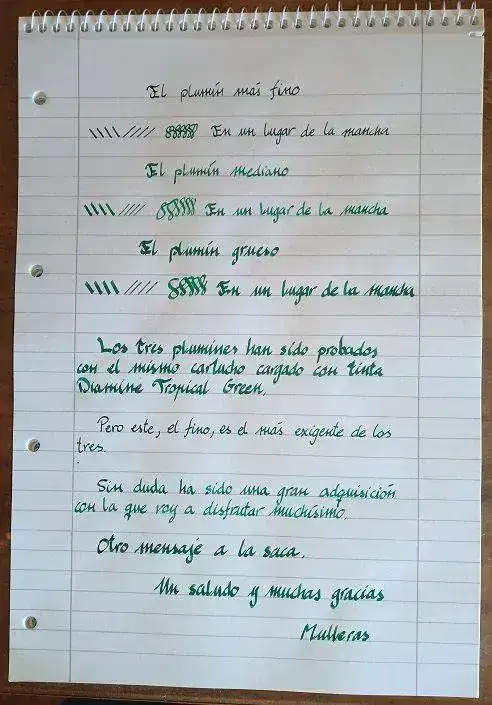 El plumín más fino
En un lugar de la mancha
El plumín mediano
En un lugar de la mancha
El plumín grueso
En un lugar de la mancha
Los tres plumines han sido probados
con el mismo cartucho cargado con tinta
Diamine Tropical Green.
Pero este, el fino, es el más exigente de los
tres.
Sin duda ha sido una gran adquisición
con la que voy a disfrutar muchísimo.
Otro mensaje a la saca.
Un saludo y muchas gracias
Mulleras